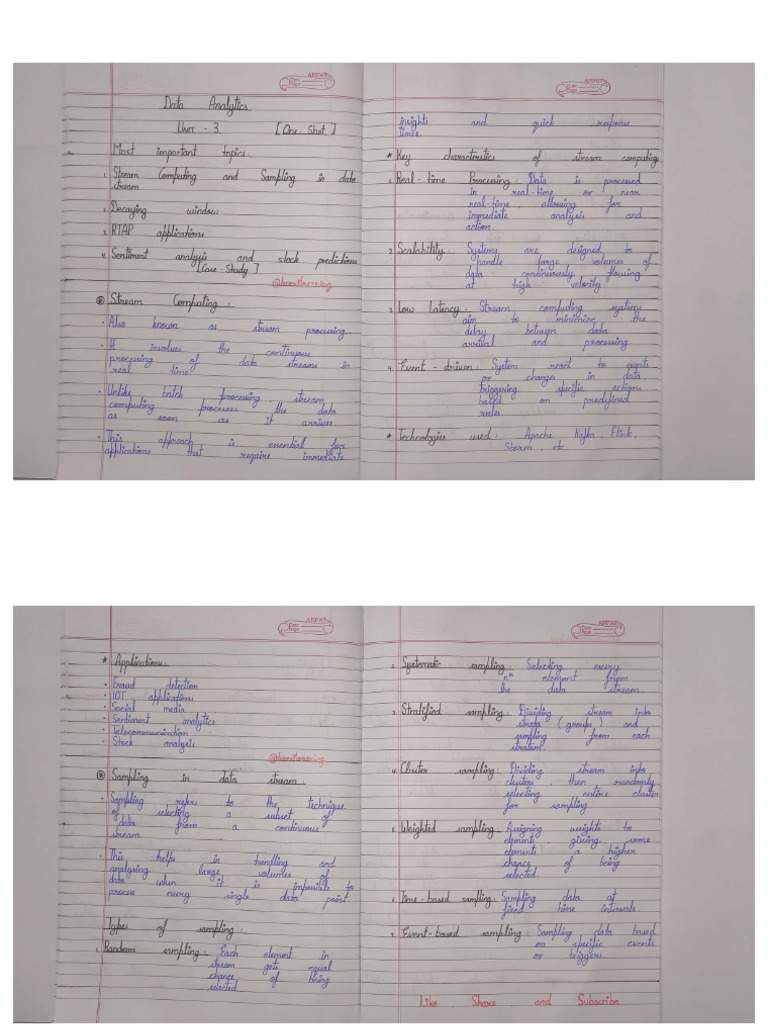 ARPAT
Date
Page
Data Analytics
Unit - 3 [One-Shot]
Most important topics:
1. Stream Computing and Sampling in data
stream
2. Decaying window
3. RTAP applications
4. Sentiment analysis and stock predictions
[Case-Study]
Stream Computing :
• Also known as stream processing.
• It involves the continuous
processing of data streams in
real time.
• Unlike batch processing, stream
computing processes the data
as soon as it arrives.
• This approach is essential for
applications that require immediate
ARPAT
Date
Page
insights and quick response
times.
* Key characteristics of stream computing
1. Real-time Processing: Data is processed
in real-time or near
real-time allowing for
immediate analysis and
action.
2. Scalability: Systems are designed to
handle large volumes of
data continuously flowing
at high velocity
3. Low latency: Stream computing systems
aim to minimize the
delay between data
arrival and processing.
4. Event-driven: System react to events
or changes in data,
triggering specific actions
based on predefined
rules.
* Technologies used: Apache Kafka, Flink,
Storm, etc
ARPAT
Date
Page
* Applications:
• Fraud detection
• IOT applications
• Social media
• Sentiment analytics
• Telecommunication
• Stock analysis
Sampling in data stream:
• Sampling refers to the technique
of selecting a subset of
data from a continuous
stream
• This helps in handling and
analysing large volumes of
data when it is impossible to
process every single data point.
Types of sampling:
1. Random sampling: Each element in
stream gets equal
chance of being
selected
ARPAT
Date
Page
2. Systematic sampling: Selecting every
nth element from
the data stream.
3. Stratified sampling: Dividing stream into
strata (groups) and
sampling from each
stratum.
4. Cluster sampling: Dividing stream into
clusters, then randomly
selecting entire cluster
for sampling.
5. Weighted sampling: Assigning weights to
elements, giving some
elements a higher
chance of being
selected.
6. Time-based sampling: Sampling data at
fixed time intervals.
7. Event-based sampling: Sampling data based
on specific events
or triggers.
Like, Share and Subscribe